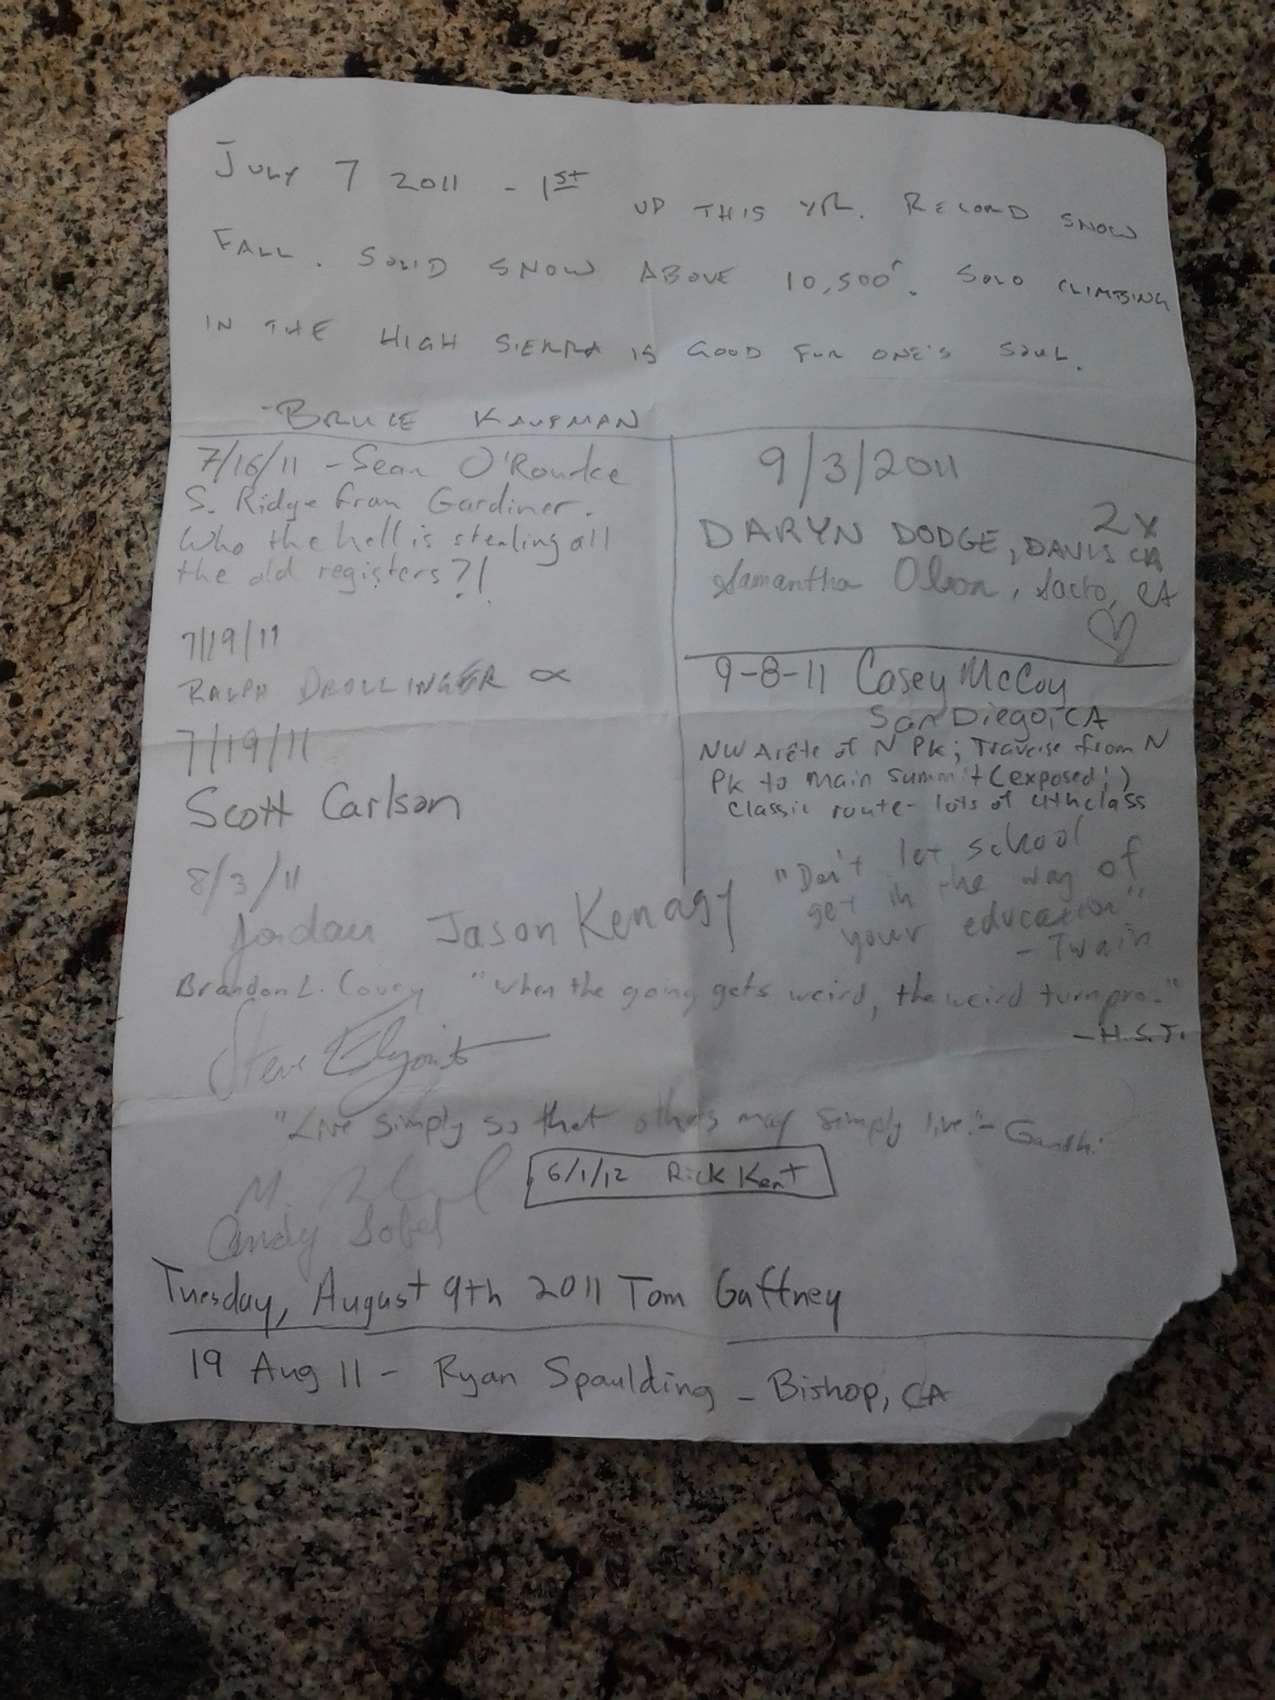 JULY 7 2011 - 1st UP THIS YR. RECORD SNOW
FALL. SOLID SNOW ABOVE 10,500'. SOLO CLIMBING
IN THE HIGH SIERRA IS GOOD FOR ONE'S SOUL.
- BRUCE KAUFMAN
7/16/11 - Sean O'Rourke
S. Ridge from Gardiner.
Who the hell is stealing all
the old registers?!
7/19/11
RALPH DROLLINGER ∝
7/19/11
Scott Carlson
8/3/11
Jordan Jason Kenagy
Brandon L. Covey "When the going gets weird, the weird turn pro."
- H.S.T.
Steve
"Live simply so that others may simply live." - Gandhi
M.
Andy Sobel
6/1/12 Rick Kent
Tuesday, August 9th 2011 Tom Gaffney
19 Aug 11 - Ryan Spaulding - Bishop, CA
9/3/2011
2x
DARYN DODGE, DAVIS CA
Samantha Olson, Sacto, CA
♡
9-8-11 Casey McCoy
San Diego, CA
NW Arête of N Pk; Traverse from N
Pk to main summit (exposed!)
Classic route - lots of 4th class
"Don't let school
get in the way of
your education"
- Twain